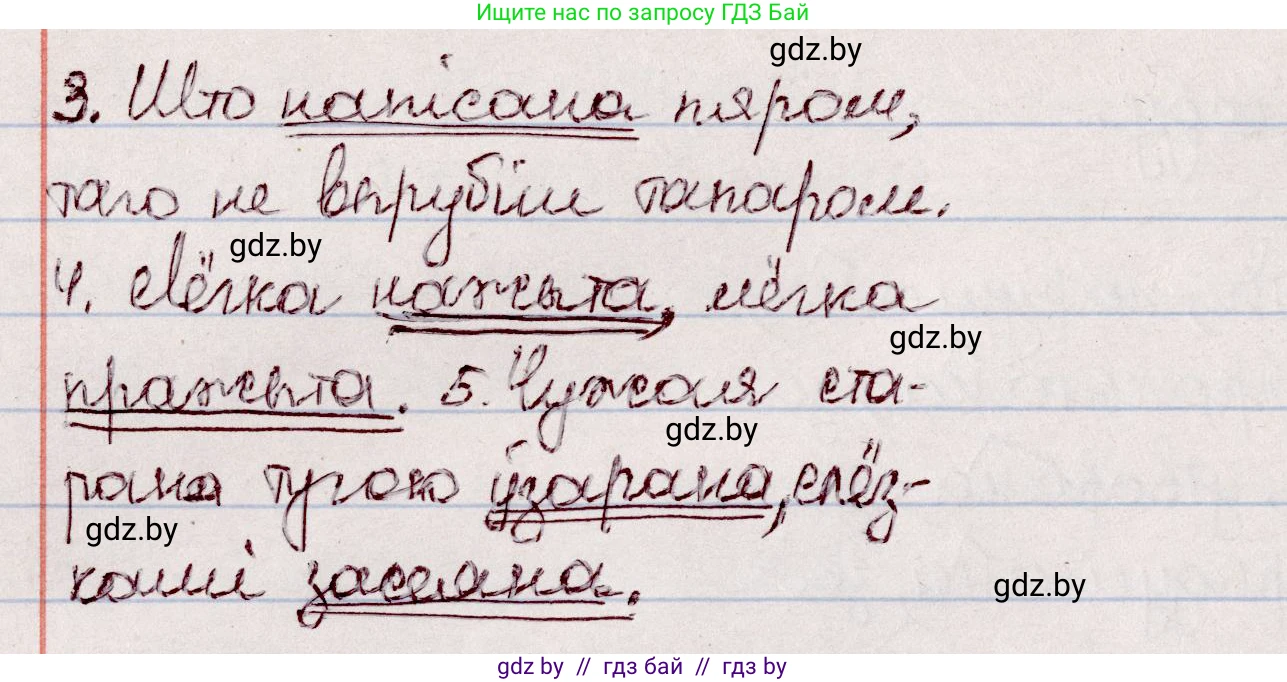 Ищите нас по запросу ГДЗ Бай
gdz.by
3. Што напісана пяром,
таго не вырубіш тапаром.
gdz.by
4. Лёгка нажыта, лёгка
gdz.by
пражыта. 5. Чужая ста-
gdz.by
рана тугою ўзарана, слёз-
gdz.by
камі засеяна.
gdz.by
gdz by // гдз бай // гдз by